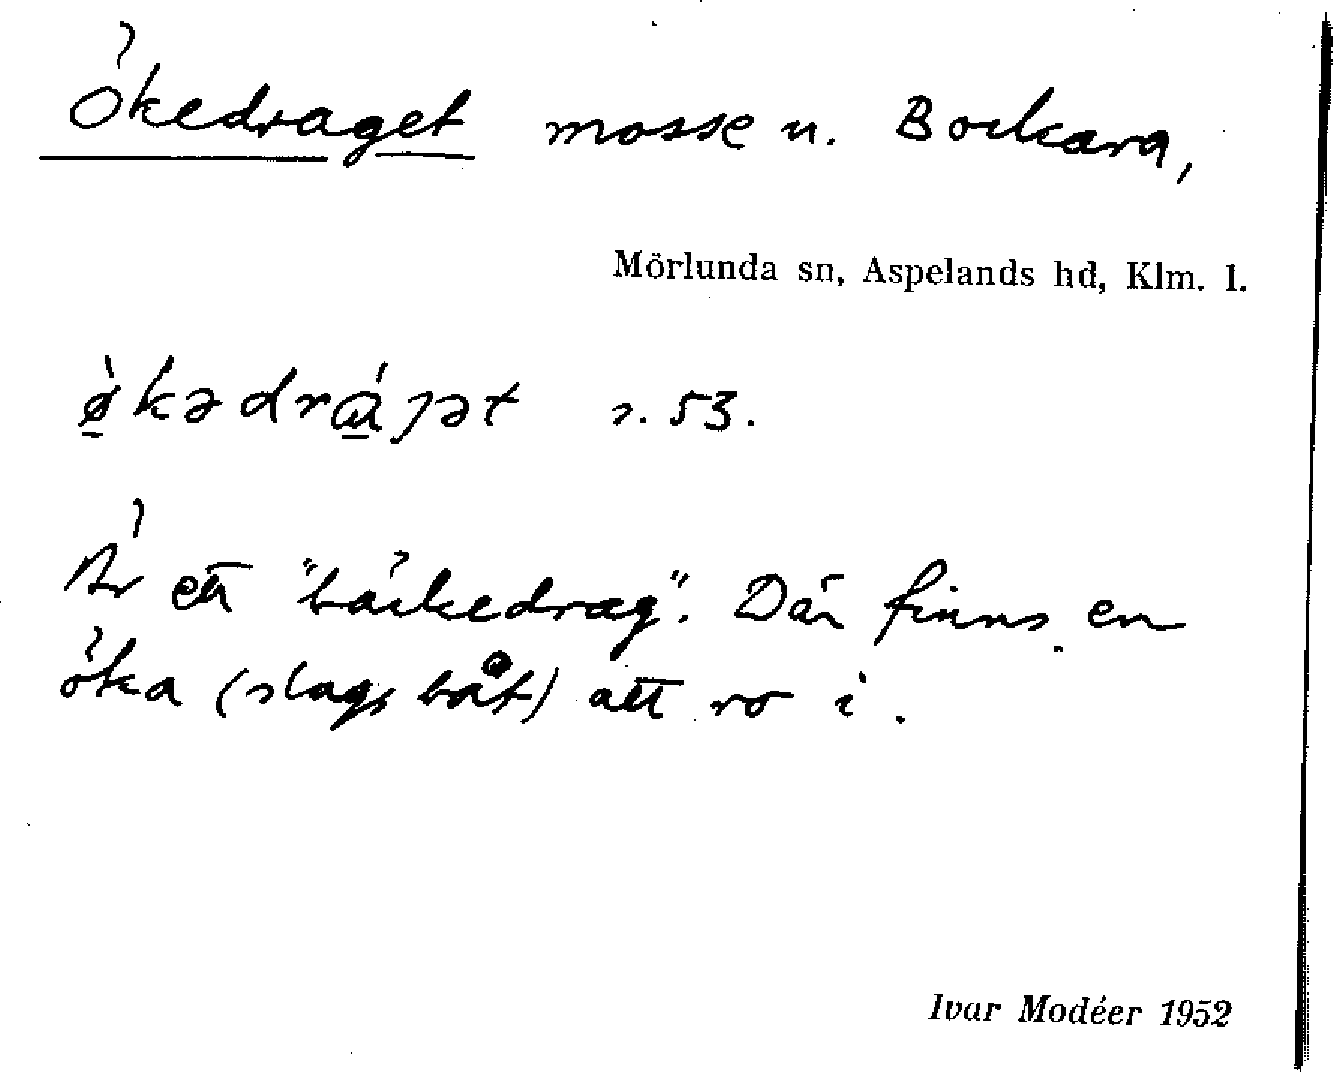 Ökedraget mosse u. Bockara,
Mörlunda sn, Aspelands hd, Klm. l.
ø̱̀kədrɑ̱́ɟət s. 53.
Är ett "bäckedrag". Där finns en
öka (slags båt) att ro i.
Ivar Modéer 1952